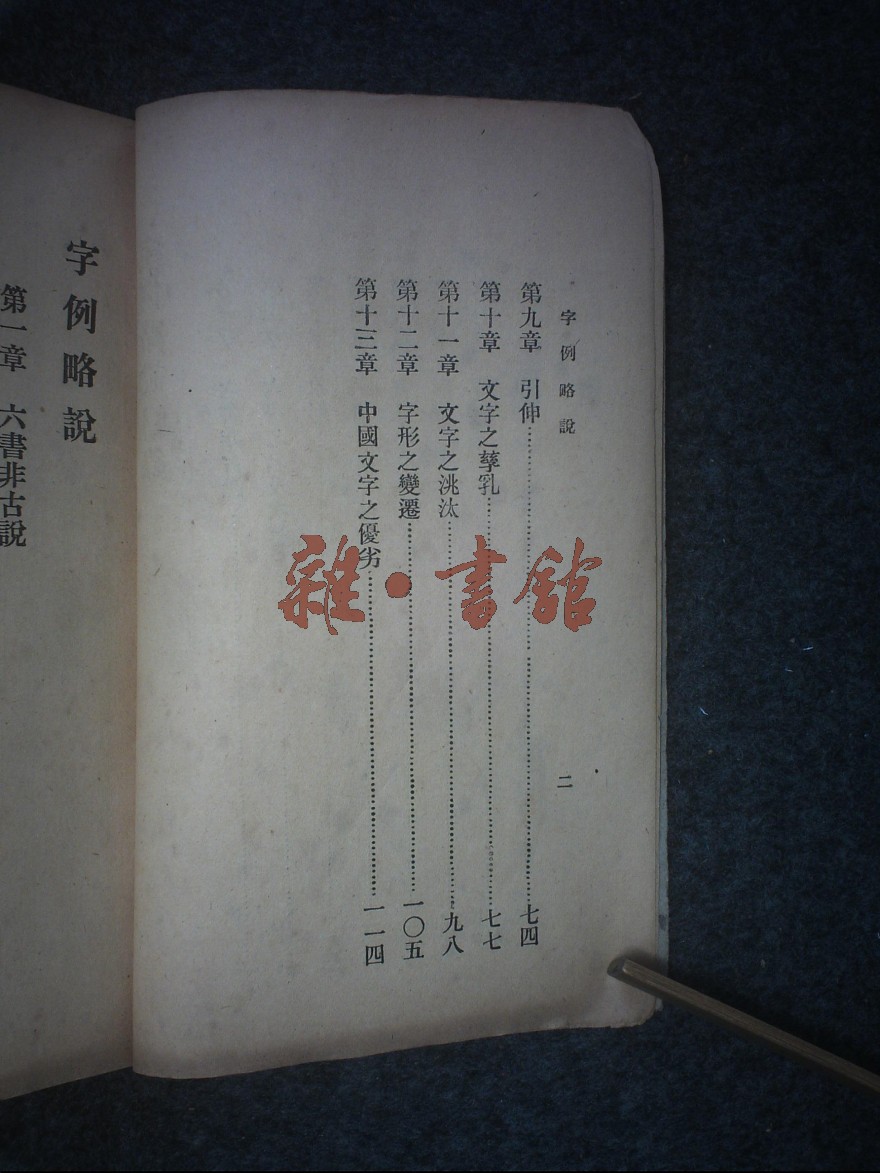 字例略說
第九章　引伸……七四
第十章　文字之孳乳……七七
第十一章　文字之洮汰……九八
第十二章　字形之變遷……一〇五
第十三章　中國文字之優劣……一一四
二
字例略說
第一章　六書非古說
雜·書館